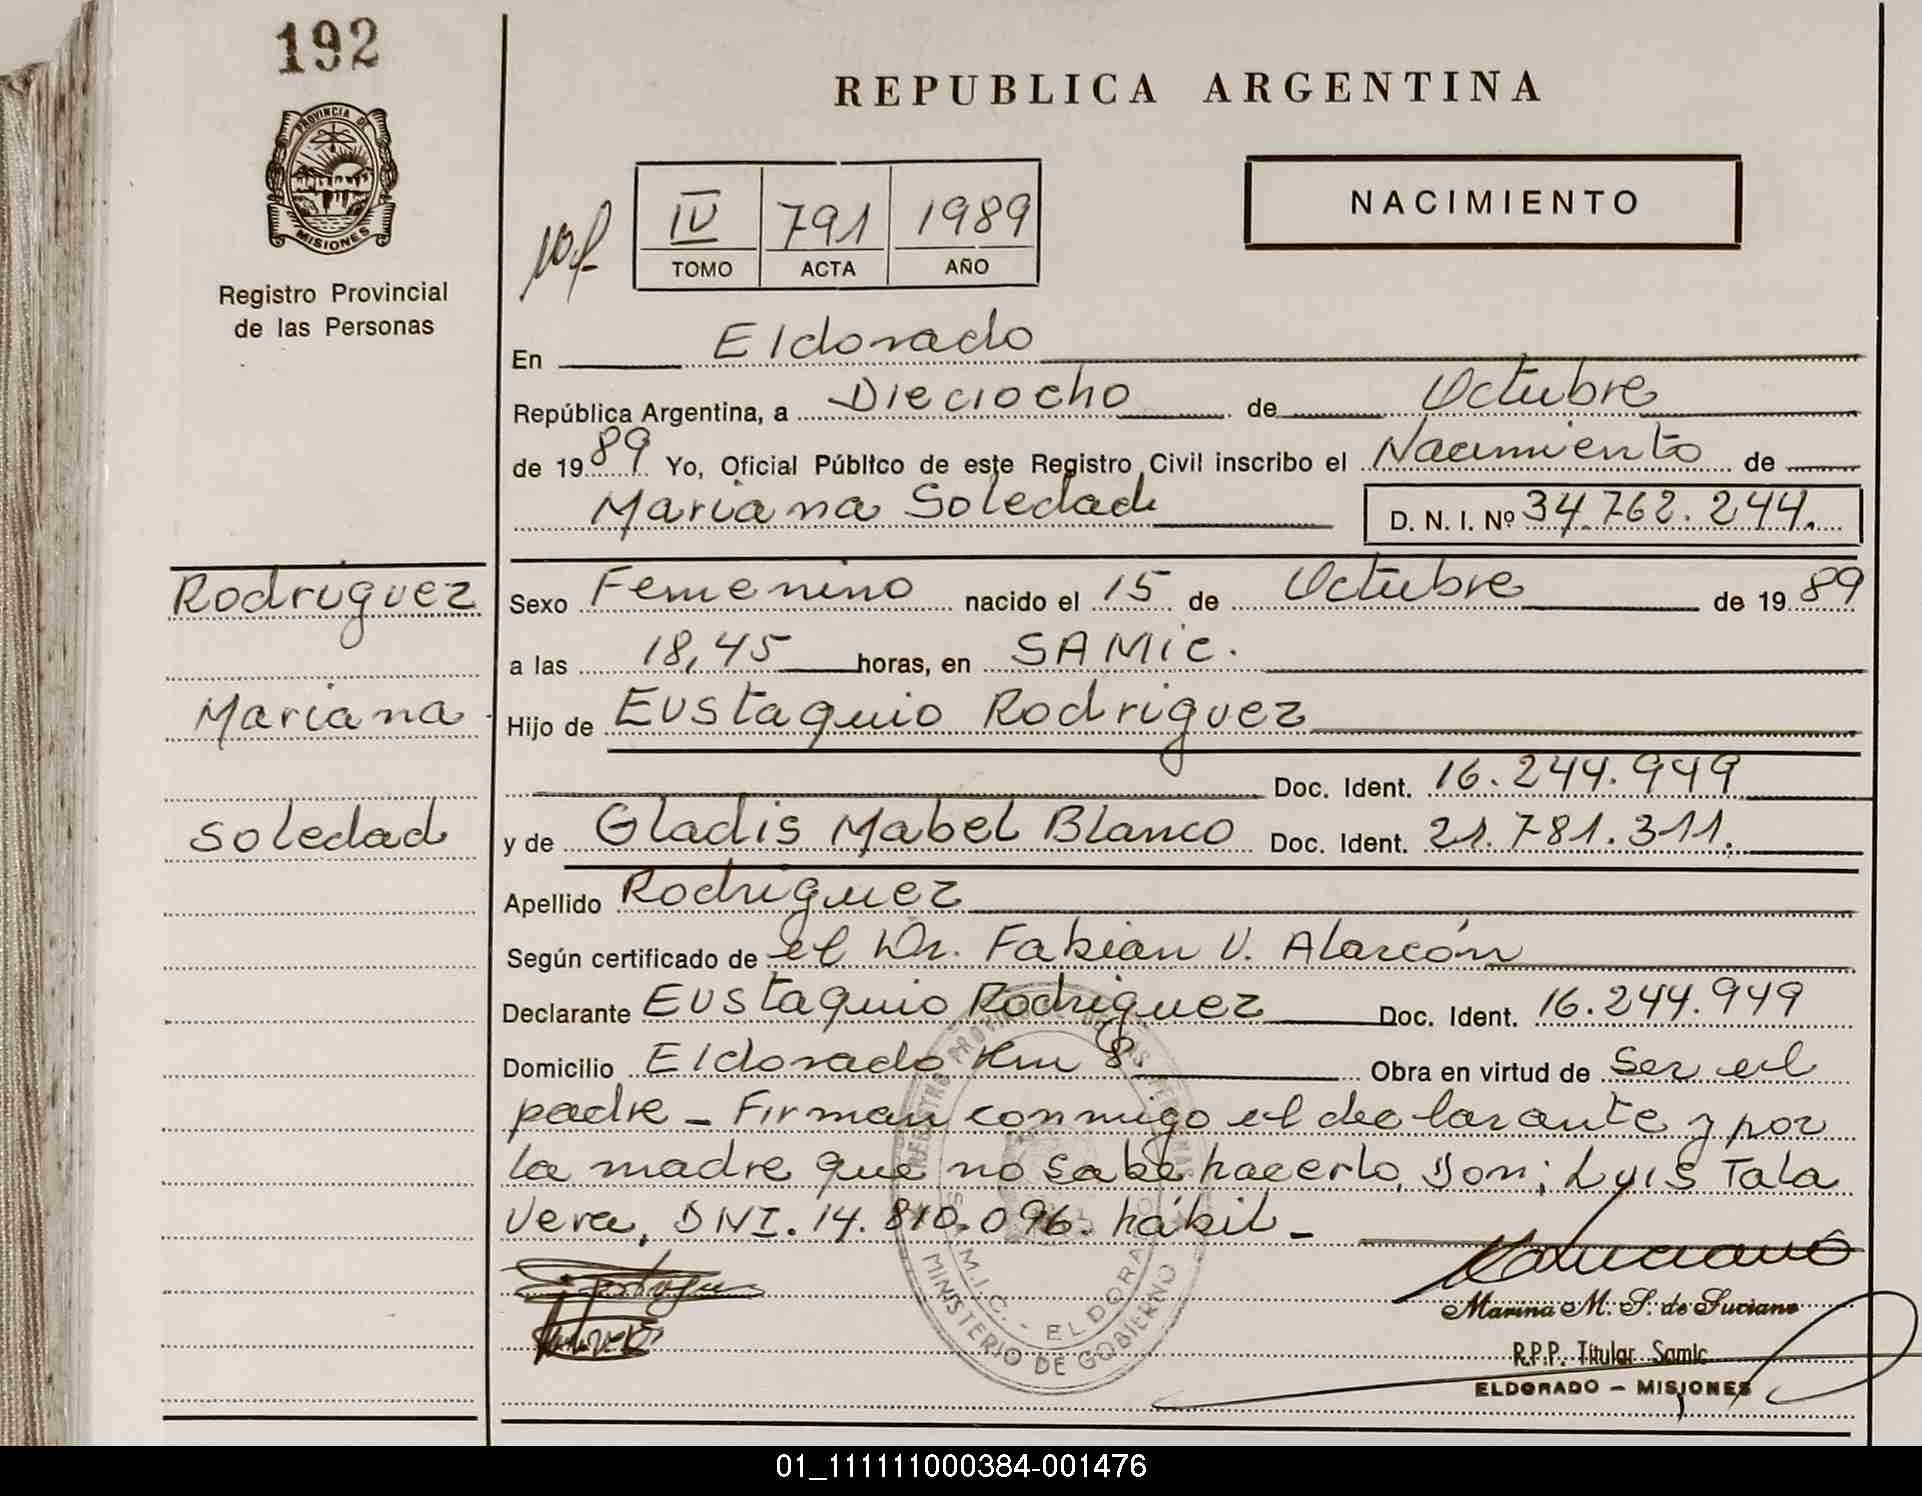 192
PROVINCIA DE
MISIONES
Registro Provincial
de las Personas
Rodriguez
Mariana
Soledad
REPUBLICA ARGENTINA
IV 791 1989
TOMO ACTA AÑO
NACIMIENTO
En Eldorado
República Argentina, a Dieciocho de Octubre
de 1989 Yo, Oficial Público de este Registro Civil inscribo el Nacimiento de
Mariana Soledad D. N. I. Nº 34.762.244.
Sexo Femenino nacido el 15 de Octubre de 1989
a las 18,45 horas, en SAMIC.
Hijo de Eustaquio Rodriguez
Doc. Ident. 16.244.949
y de Gladis Mabel Blanco Doc. Ident. 21.781.311.
Apellido Rodriguez
Según certificado de el Dr. Fabian V. Alarcón
Declarante Eustaquio Rodriguez Doc. Ident. 16.244.949
Domicilio Eldorado Km 8. Obra en virtud de ser el
padre - Firman conmigo el declarante y por
la madre que no sabe hacerlo, Don; Luis Tala
vera, DNI. 14.810.096. hábil -
S.A.M.I.C. - ELDORADO
MINISTERIO DE GOBIERNO
Marina M. S. de Luciano
R.P.P. Titular Samic
ELDORADO - MISIONES
01_111111000384-001476